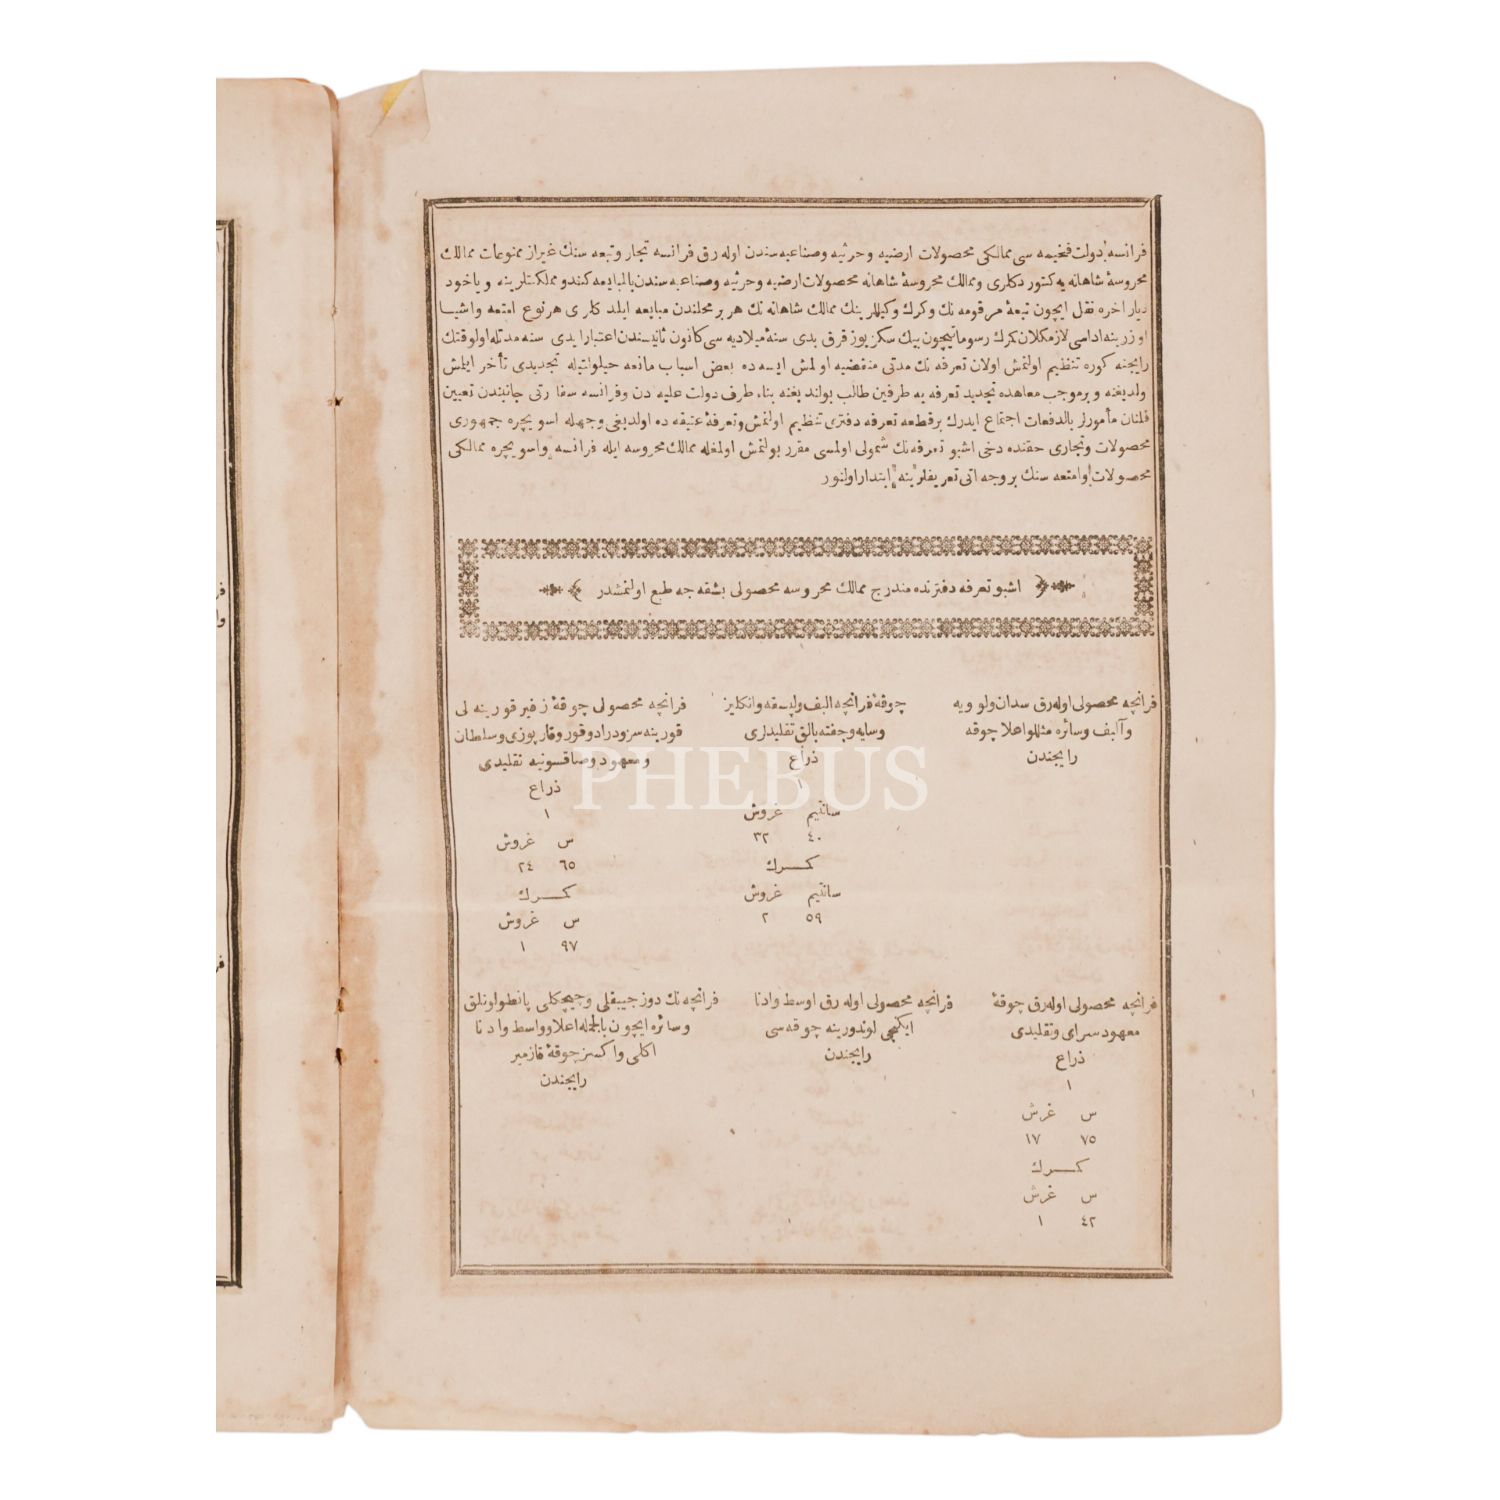 فرانسه دولت فخيمه سى ممالكى محصولات ارضيه وحرثيه وصناعيه سندن اوله رق فرانسه تجار وتبعه سنك غيراز ممنوعات ممالك
محروسهٔ شاهانه يه كتوردكلرى وممالك محروسهٔ شاهانه محصولات ارضيه وحرثيه وصناعيه سندن بالمبايعه كندو مملكتلرينه وياخود
ديار اخره نقل ايچون تبعهٔ مرقومه نك وكرك وكيللرينك ممالك شاهانه نك هر بر محلندن مبايعه ايلدكلرى هر نوع امتعه واشيا
اوزرينه اداسى لازمكلان كمرك رسوماتيچون بيك سكز يوز قرق يدى سنهٔ ميلاديه سى كانون ثانيسندن اعتبارا يدى سنه مدتله اولوقتك
رايجنه كوره تنظيم اولنمش اولان تعرفه نك مدتى منقضيه اولمش ايسه ده بعض اسباب مانعه حيلولتيله تجديدى تأخر ايلمش
ولديغنه وبرموجب معاهده تجديد تعرفه به طرفين طالب بولنديغنه بناء طرف دولت عليه دن وفرانسه سفارتى جانبندن تعيين
قلنان مأمورلر بالدفعات اجتماع ايدرك برقطعه تعرفه دفترى تنظيم اولنمش وتعرفهٔ عتيقه ده اولديغى وجهله اسويچره جمهورى
محصولات وتجارى حقنده دخى اشبو تعرفه نك شمولى اولمسى مقرر بولنمش اولمغله ممالك محروسه ايله فرانسه واسويچره ممالكى
محصولات وامتعه سنك بروجه اتى تعريفلرينه ابتدار اولنور
اشبو تعرفه دفترنده مندرج ممالك محروسه محصولى بشقه جه طبع اولنمشدر
فرانچه محصولى اوله رق سدان ولوويه
وآلبف وسائره مثللو اعلا چوقه
رايجندن
چوقهٔ فرانچه البف ولپسقه وانكليز
وسايه وچفته بالق تقليدلرى
ذراع
١
سانتيم غروش
٤٠ ٣٢
كمرك
سانتيم غروش
٥٩ ٢
فرانچه محصولى چوقهٔ زفير قورينه لى
قورينه سز ودرادوقور وقارپوزى وسلطان
ومعهود وصاقسونيه تقليدى
ذراع
١
س غروش
٦٥ ٢٤
كمرك
س غروش
٩٧ ١
فرانچه محصولى اوله رق چوقهٔ
معهود سراى وتقليدى
ذراع
١
س غرش
٧٥ ١٧
كمرك
س غرش
٤٢ ١
فرانچه محصولى اوله رق اوسط وادنا
ايكنجى لوندورينه چوقه سى
رايجندن
فرانچه نك دوز جيبقلى وچيچكلى پانطولونلق
وسائره ايچون بالجمله اعلا وواسط وادنا
اكلى واكسز چوقهٔ قازمير
رايجندن
PHEBUS